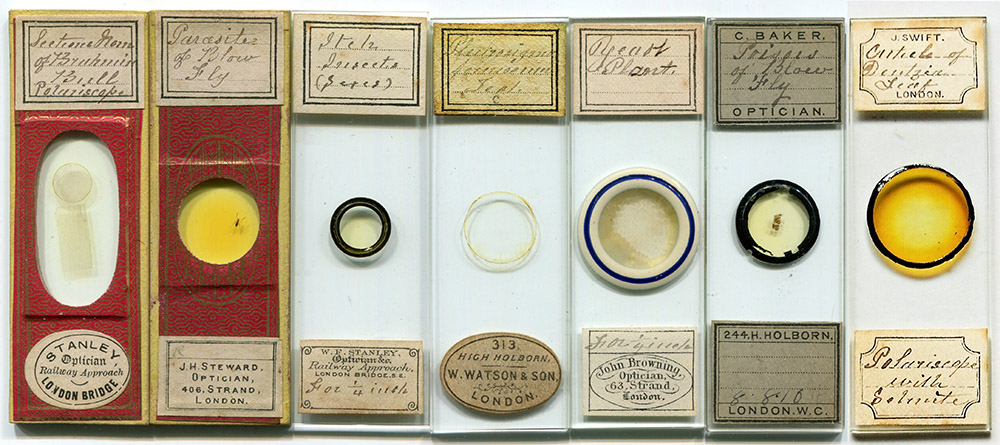 Sections Horn
of Brahmin
Bull
Polariscope
STANLEY
Optician
Railway Approach
LONDON BRIDGE
Parasite
of Blow
Fly
J.H. STEWARD,
OPTICIAN,
406, STRAND,
LONDON.
Itch
Insects
(Sexes)
W. F. STANLEY,
Optician &c.
Railway Approach,
LONDON BRIDGE. S.E.
½ or ¼ inch
Pleurosigma
313,
HIGH HOLBORN,
W. WATSON & SON,
LONDON.
Yeast
Plant.
½ or ¼ inch
John Browning,
Optician
63, Strand,
London.
C. BAKER,
of Blow
Fly
OPTICIAN.
244, H. HOLBORN,
LONDON. W.C.
J. SWIFT.
Cuticle of
Deutzia
Leaf
LONDON.
Polariscope
with
Selenite